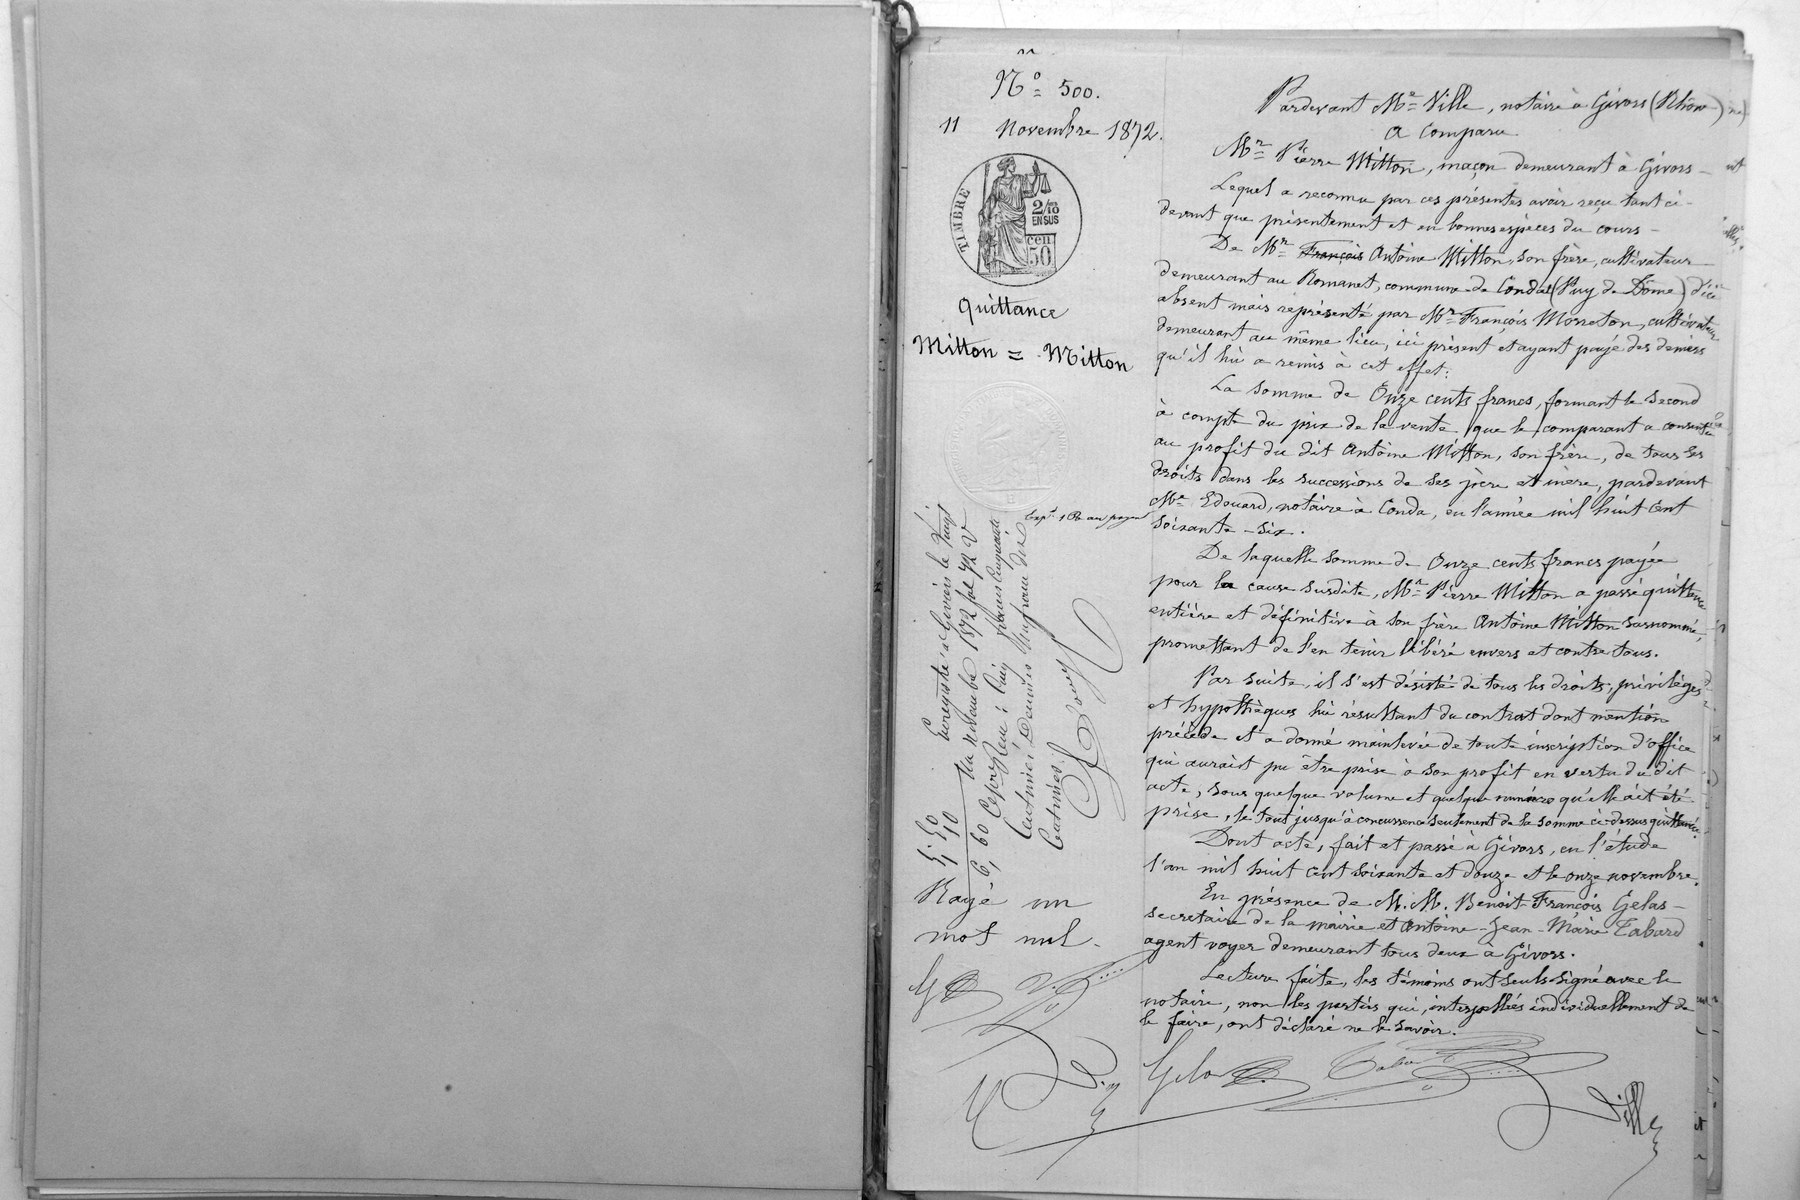 No 500.
11 Novembre 1872.
TIMBRE
2/10
EN SUS
cen
50
Quittance
Mitton = Mitton
Expn 1 R. au payeur
Enregistré à Givors le Vingt
un novembre 1872 fol 72 V
Ce, reçu : Cinq francs Cinquante
Centimes, Décimes Un franc dix
Centimes.
5. 50
1, 10
6, 60
Rayé un
mot nul.
Pardevant Me Ville, notaire à Givors (Rhône)
A Comparu
Mr Pierre Mitton, maçon demeurant à Givors
Lequel a reconnu par ces présentes avoir reçu tant ci-
devant que présentement et en bonnes espèces du cours
De Mr François Antoine Mitton, son frère, cultivateur
demeurant au Romanet, commune de Condat (Puy de Dôme) d'ici
absent mais représenté par Mr François Morreton, cultivateur
demeurant au même lieu, ici présent et ayant payé des deniers
qu'il lui a remis à cet effet:
La somme de Onze cents francs, formant le second
à compte du prix de la vente, que le comparant a consentie
au profit du dit Antoine Mitton, son frère, de tous ses
droits dans les successions de ses père et mère, pardevant
Me Edouard, notaire à Conda, en l'année mil huit cent
soixante-six.
De laquelle somme de Onze cents francs payée
pour la cause susdite, Mr Pierre Mitton a passé quittance
entière et définitive à son frère Antoine Mitton susnommé,
promettant de l'en tenir libéré envers et contre tous.
Par suite, il s'est désisté de tous les droits, privilèges
et hypothèques lui résultant du contrat dont mention
précède et a donné mainlevée de toute inscription d'office
qui aurait pu être prise à son profit en vertu du dit
acte, sous quelque volume et quelque numéro qu'elle ait été
prise, le tout jusqu'à concurrence seulement de la somme ci-dessus quittancée.
Dont acte, fait et passé à Givors, en l'étude
l'an mil huit cent soixante et douze et le onze novembre.
En présence de M. M. Benoit-François Gelas
secretaire de la mairie et Antoine-Jean-Marie Tabard
agent voyer demeurant tous deux à Givors.
Lecture faite, les témoins ont seuls signé avec le
notaire, non les parties qui, interpellées individuellement de
le faire, ont déclaré ne le savoir.
Gelas
Ville